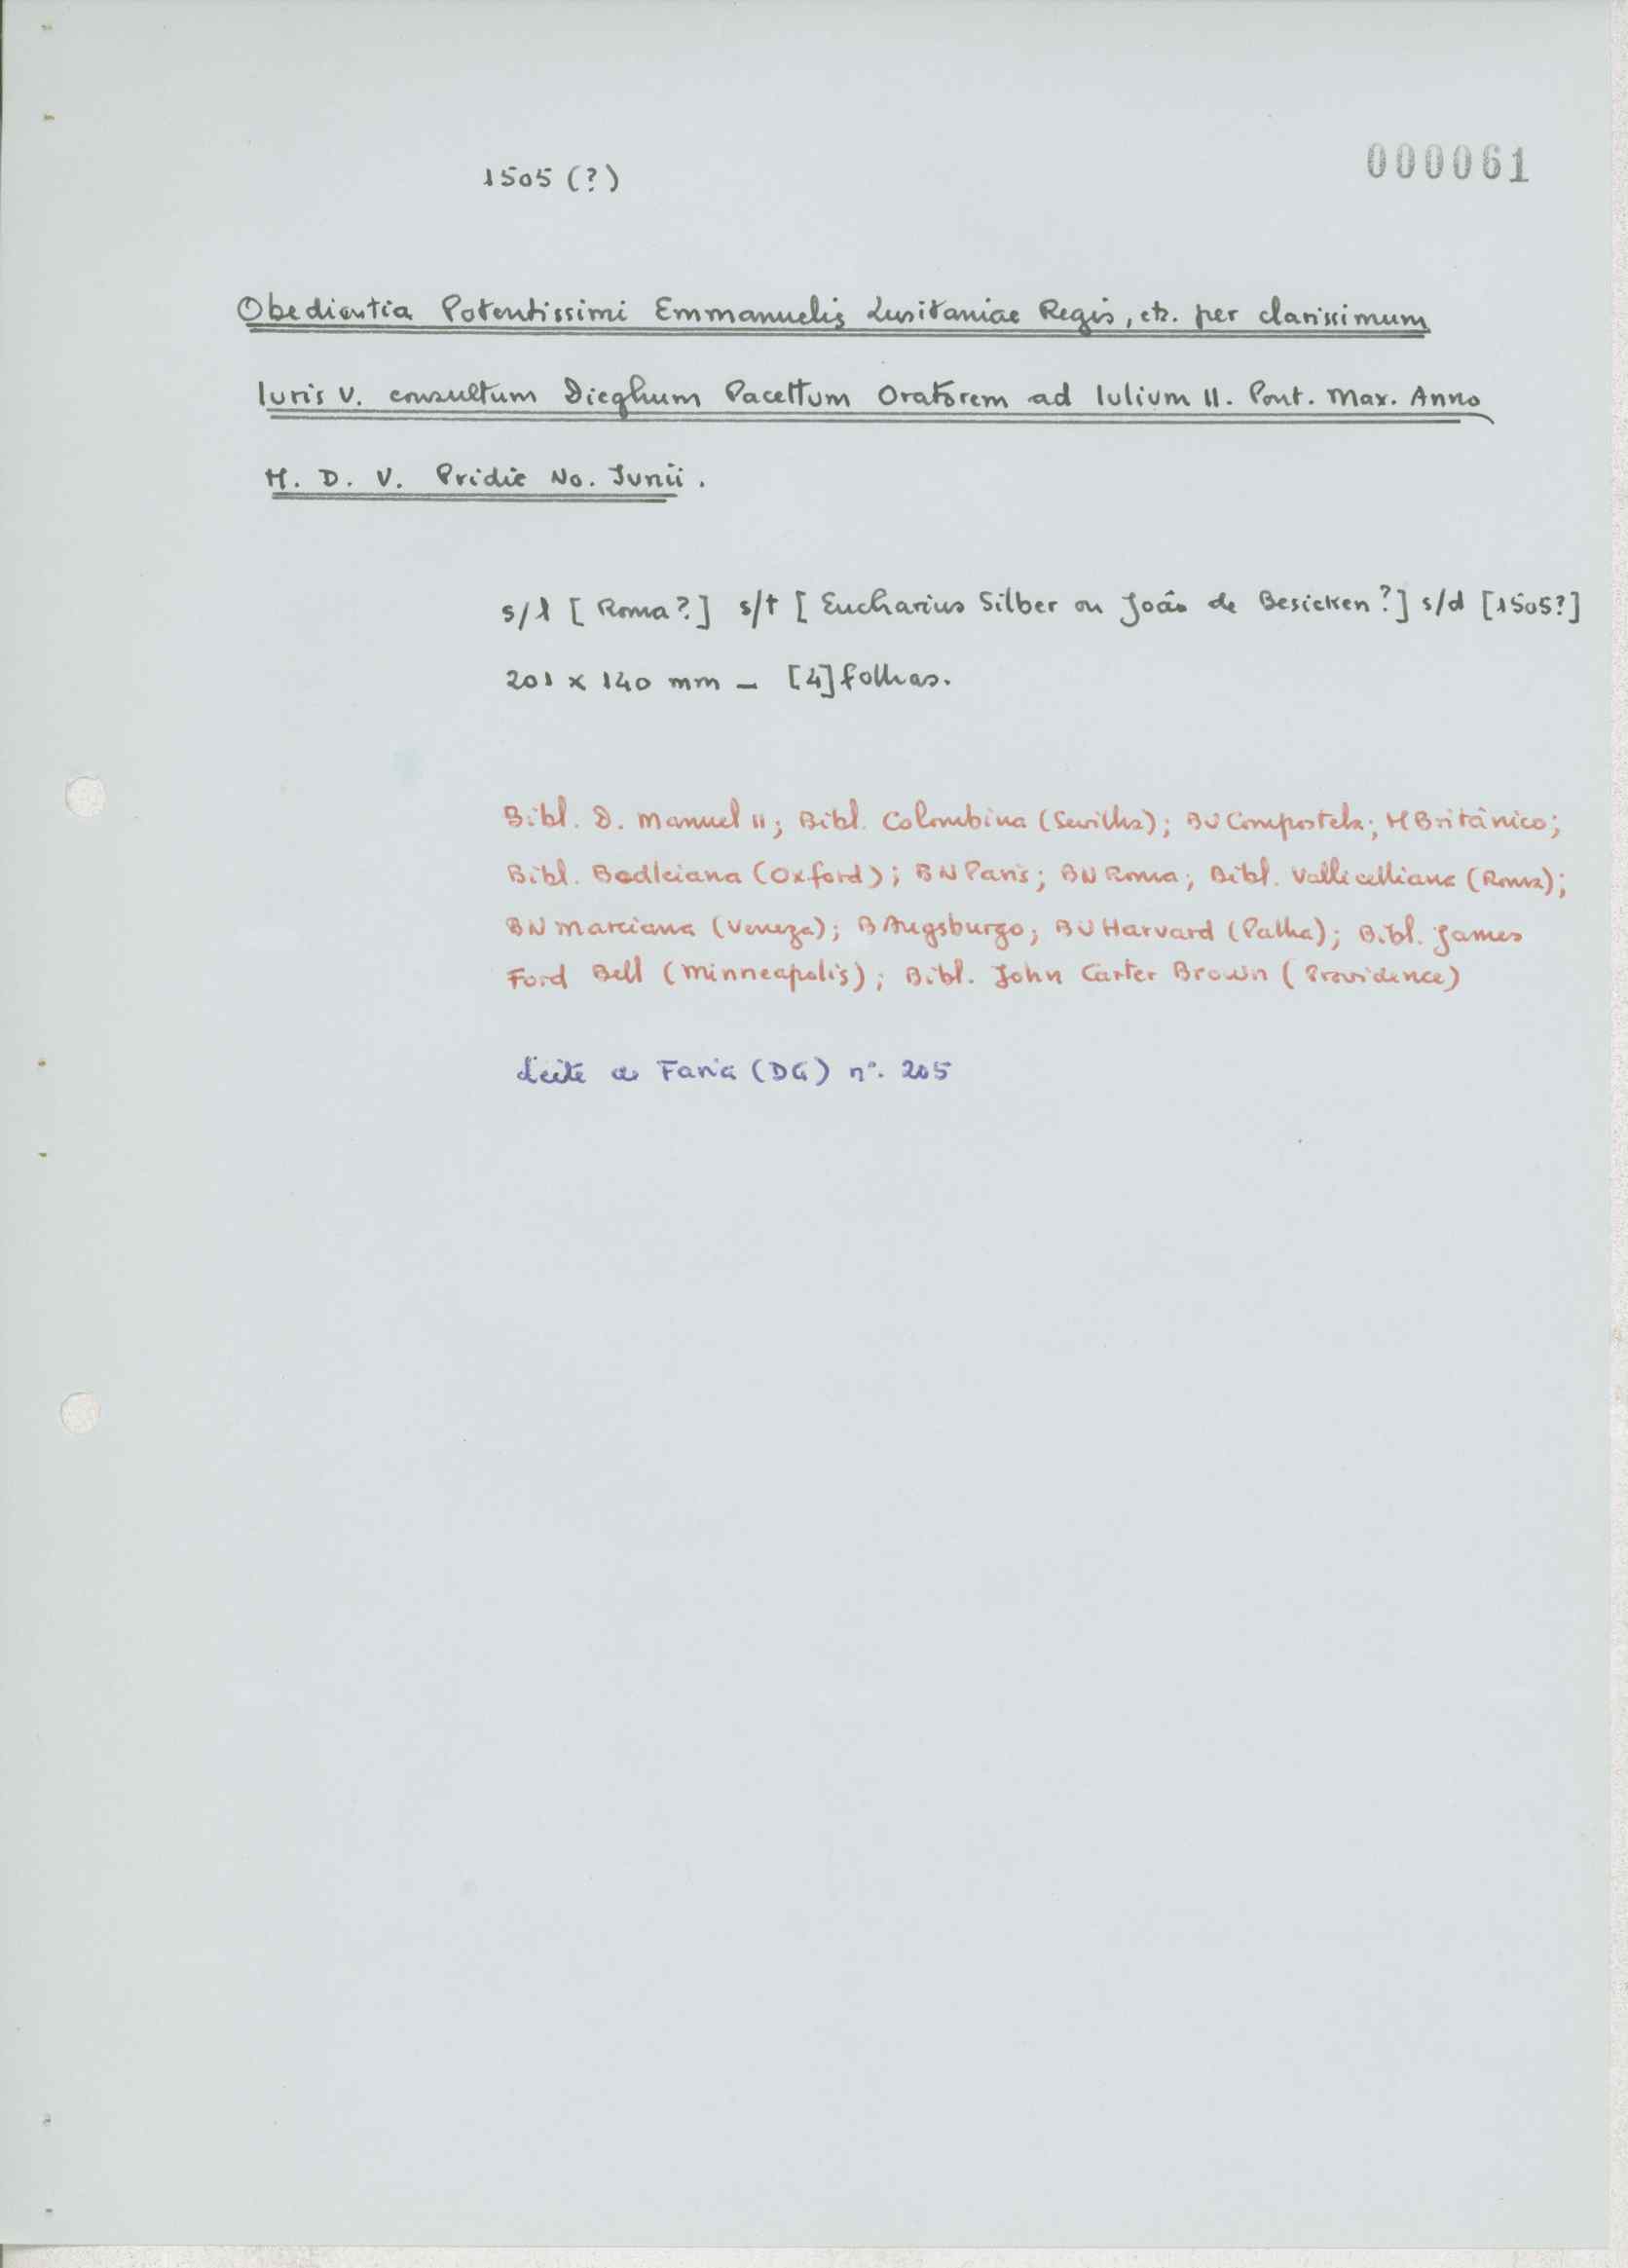 1505 (?)
000061
Obedientia Potentissimi Emmanuelis Lusitaniae Regis, etc. per clarissimum
Iuris V. consultum Dieghum Pacettum Oratorem ad Iulium II. Pont. Max. Anno
M. D. V. Pridie No. Junii.
s/l [Roma?] s/t [Eucharius Silber ou João de Besicken?] s/d [1505?]
201 x 140 mm — [4] folhas.
Bibl. D. Manuel II; Bibl. Colombina (Sevilha); BU Compostela; M Britânico;
Bibl. Bodleiana (Oxford); BN Paris; BN Roma; Bibl. Vallicelliana (Roma);
BN Marciana (Veneza); B Augsburgo; BU Harvard (Palha); Bibl. James
Ford Bell (Minneapolis); Bibl. John Carter Brown (Providence)
Leite de Faria (DG) nº. 205